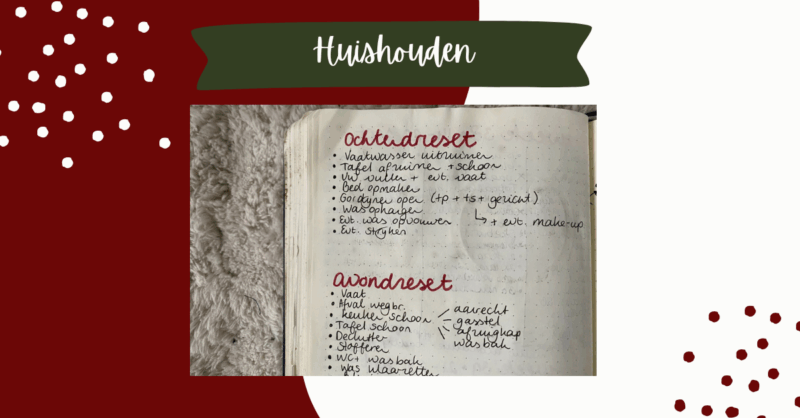 Huishouden
Ochtendreset
• Vaatwasser uitruimen
• Tafel afruimen + schoon
• VW vullen + evt. vaat
• Bed opmaken
• Gordijnen open (+p + ts + gezicht)
• Was ophangen ↳ + evt. make-up
• Evt. was opvouwen
• Evt. strijken
avondreset
• Vaat
• Afval wegbr.
• keuken schoon
aanrecht
gasstel
afzuigkap
wasbak
• Tafel schoon
• Declutter
• Stofferen
• WC + wasbak
• Was klaarzetten